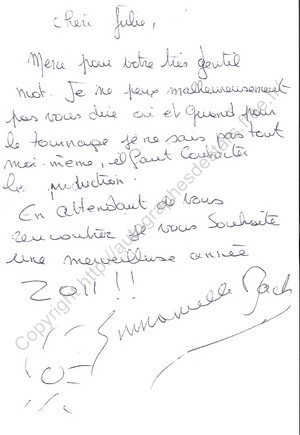 Chère Julie,
Merci pour votre très gentil
mot. Je ne peux malheureusement
pas vous dire où et quand pour
le tournage je ne sais pas tout
moi-même, il faut contacter
la production.
En attendant de vous
rencontrer je vous souhaite
une merveilleuse année
2011 !!
Emmanuelle Bach